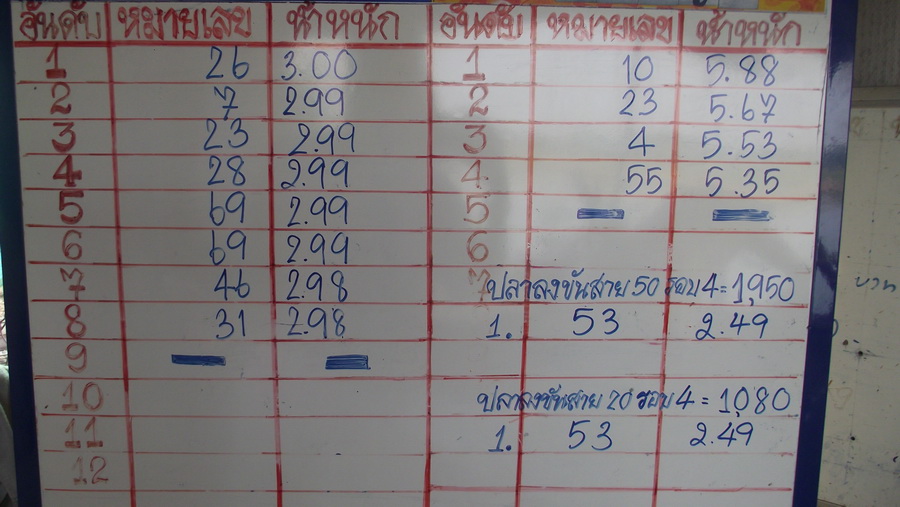 อันดับ หมายเลข น้ำหนัก อันดับ หมายเลข น้ำหนัก
1 26 3.00 1 10 5.88
2 7 2.99 2 23 5.67
3 23 2.99 3 4 5.53
4 28 2.99 4 55 5.35
5 69 2.99 5 - -
6 69 2.99 6
7 46 2.98 7 ปลาลงขันสาย 50 รอบ 4 = 1,950
8 31 2.98 1. 53 2.49
9 - -
10 ปลาลงขันสาย 20 รอบ 4 = 1,080
11 1. 53 2.49
12